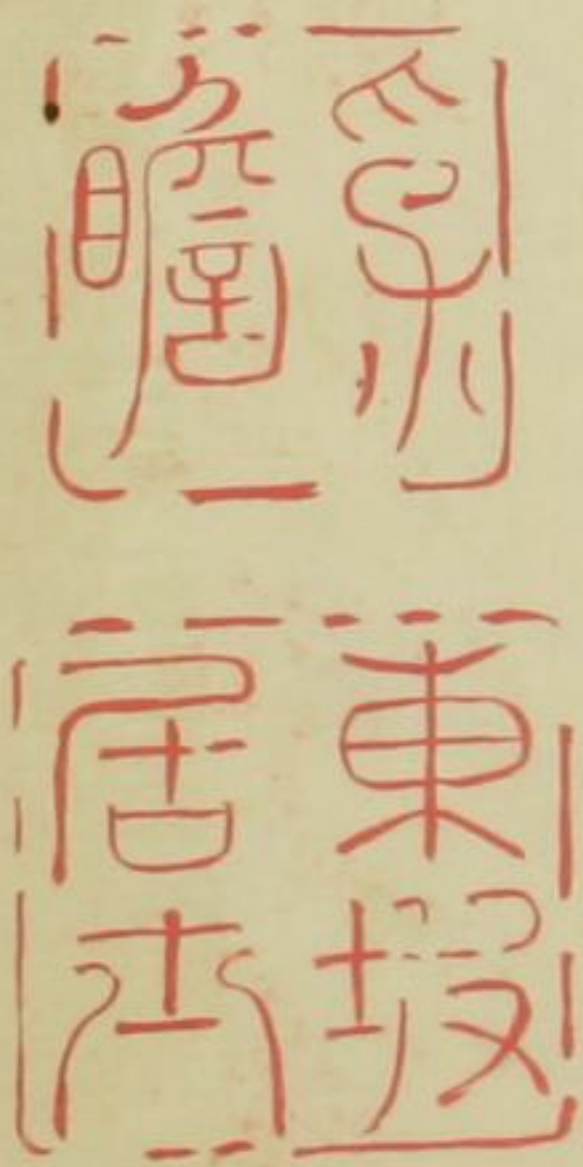 子
瞻
東坡
居士